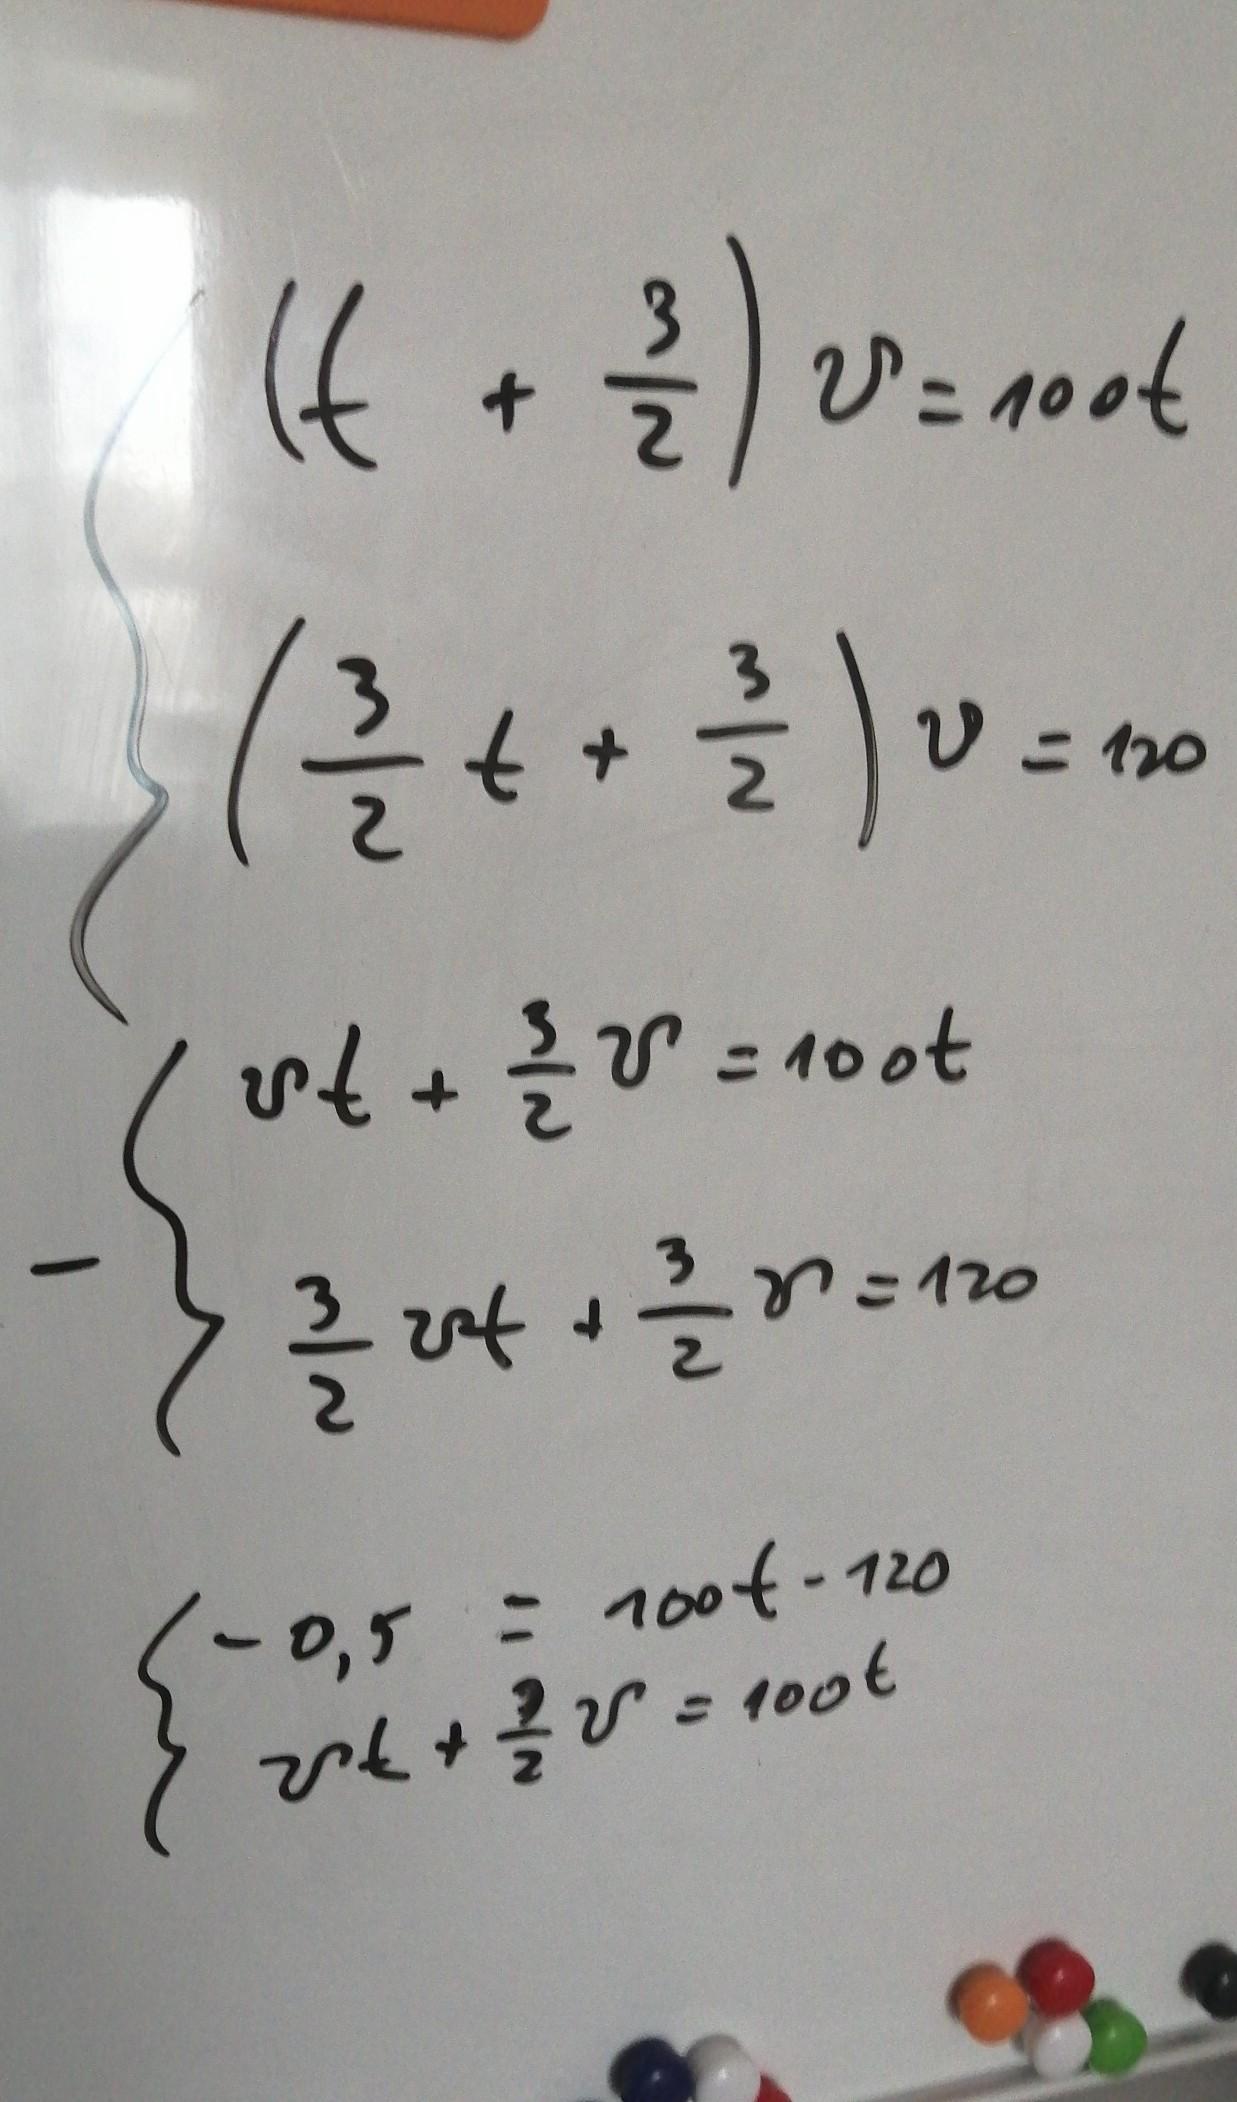 (t + 3/2) v = 100t
(3/2 t + 3/2) v = 120
vt + 3/2 v = 100t
-
3/2 vt + 3/2 v = 120
-0,5 = 100t - 120
vt + 3/2 v = 100t